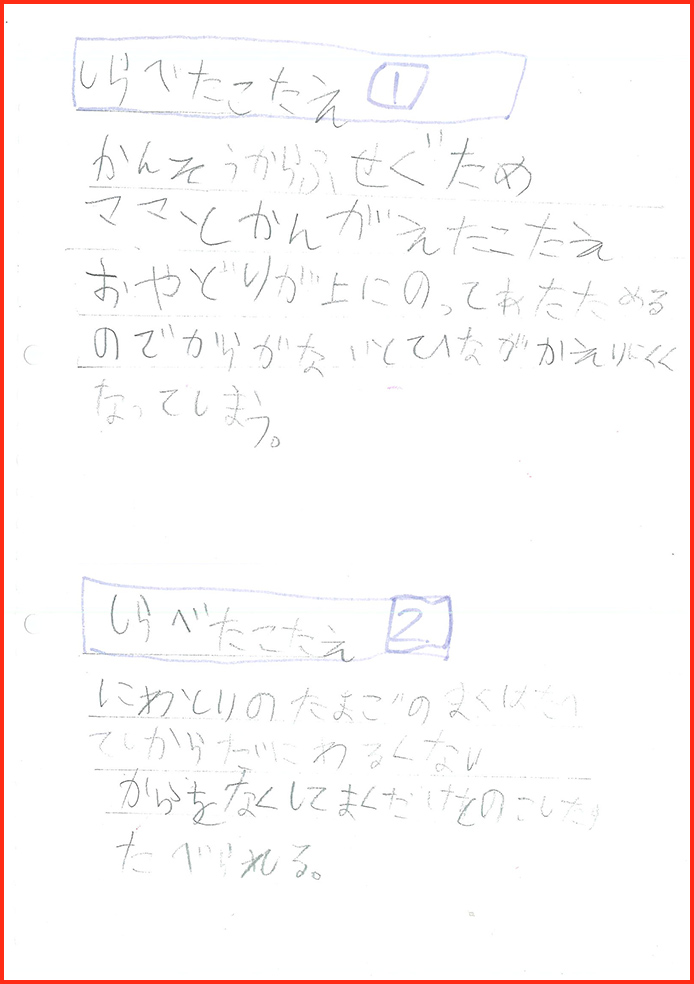 しらべたこたえ ①
かんそうからふせぐため
ママとかんがえたこたえ
おやどりが上にのってあたためる
のでからがないとひながかえりにくく
なってしまう。
しらべたこたえ 2
にわとりのたまごのまくはたべ
てもからだにわるくない
からをなくしてまくだけをのこしたら
たべられる。